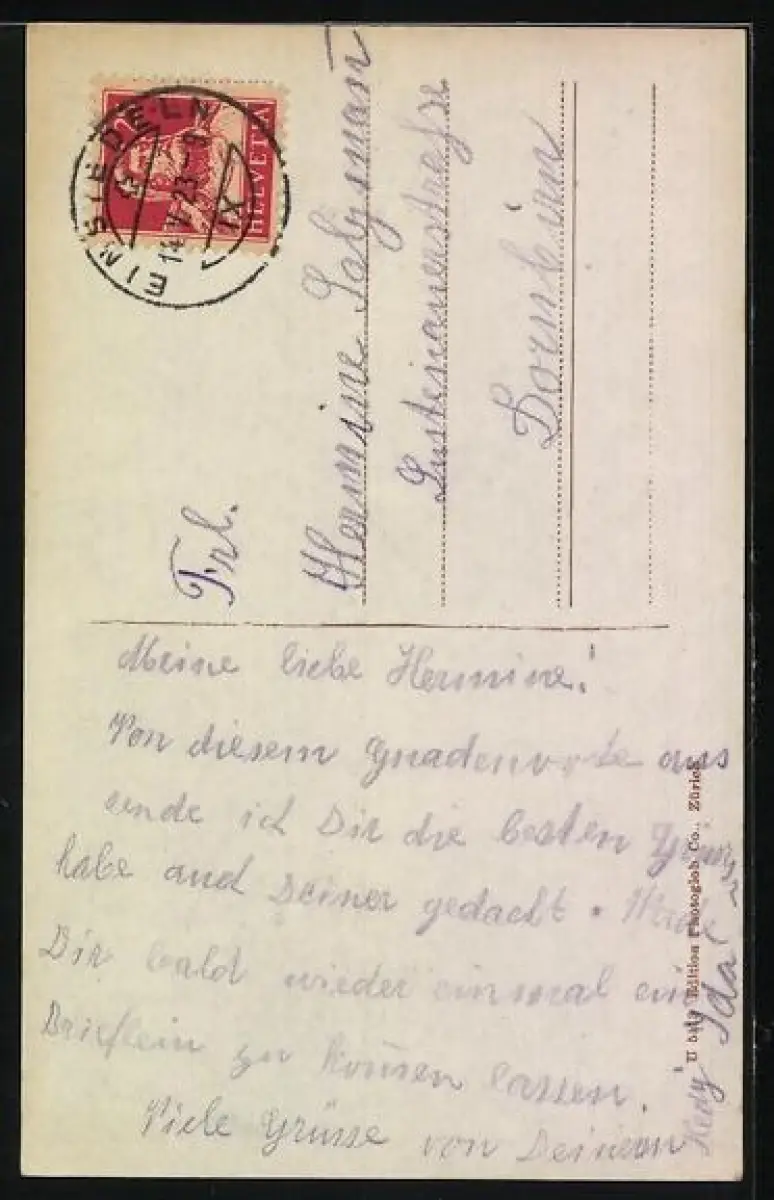 EINSIEDELN
14.V.23-9
IX
HELVETIA
Frl.
Hermine
Dornbirn
Meine liebe Hermine!
Von diesem Gnadenorte aus
sende ich Dir die besten
habe auch Deiner gedacht. Werde
Dir bald wieder einmal ein
Brieflein zu kommen lassen.
Viele Grüsse von Deinem
Hedy Ida
Edition Photoglob Co., Zürich